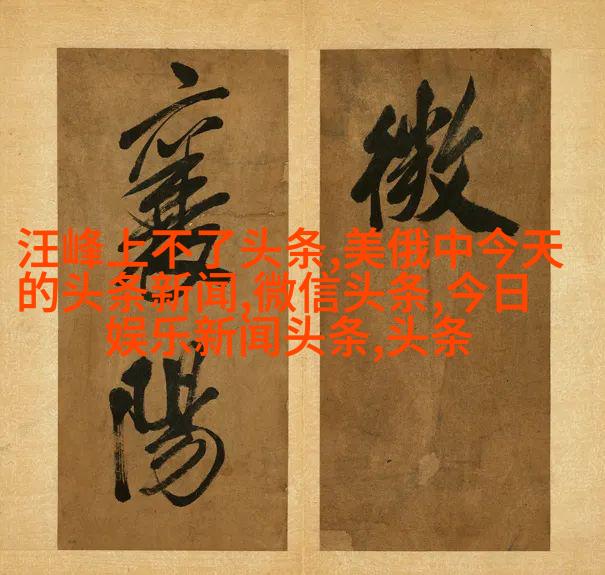 微
襄陽
汪峰上不了头条,美俄中今天
的头条新闻,微信头条,今日
娱乐新闻头条,头条